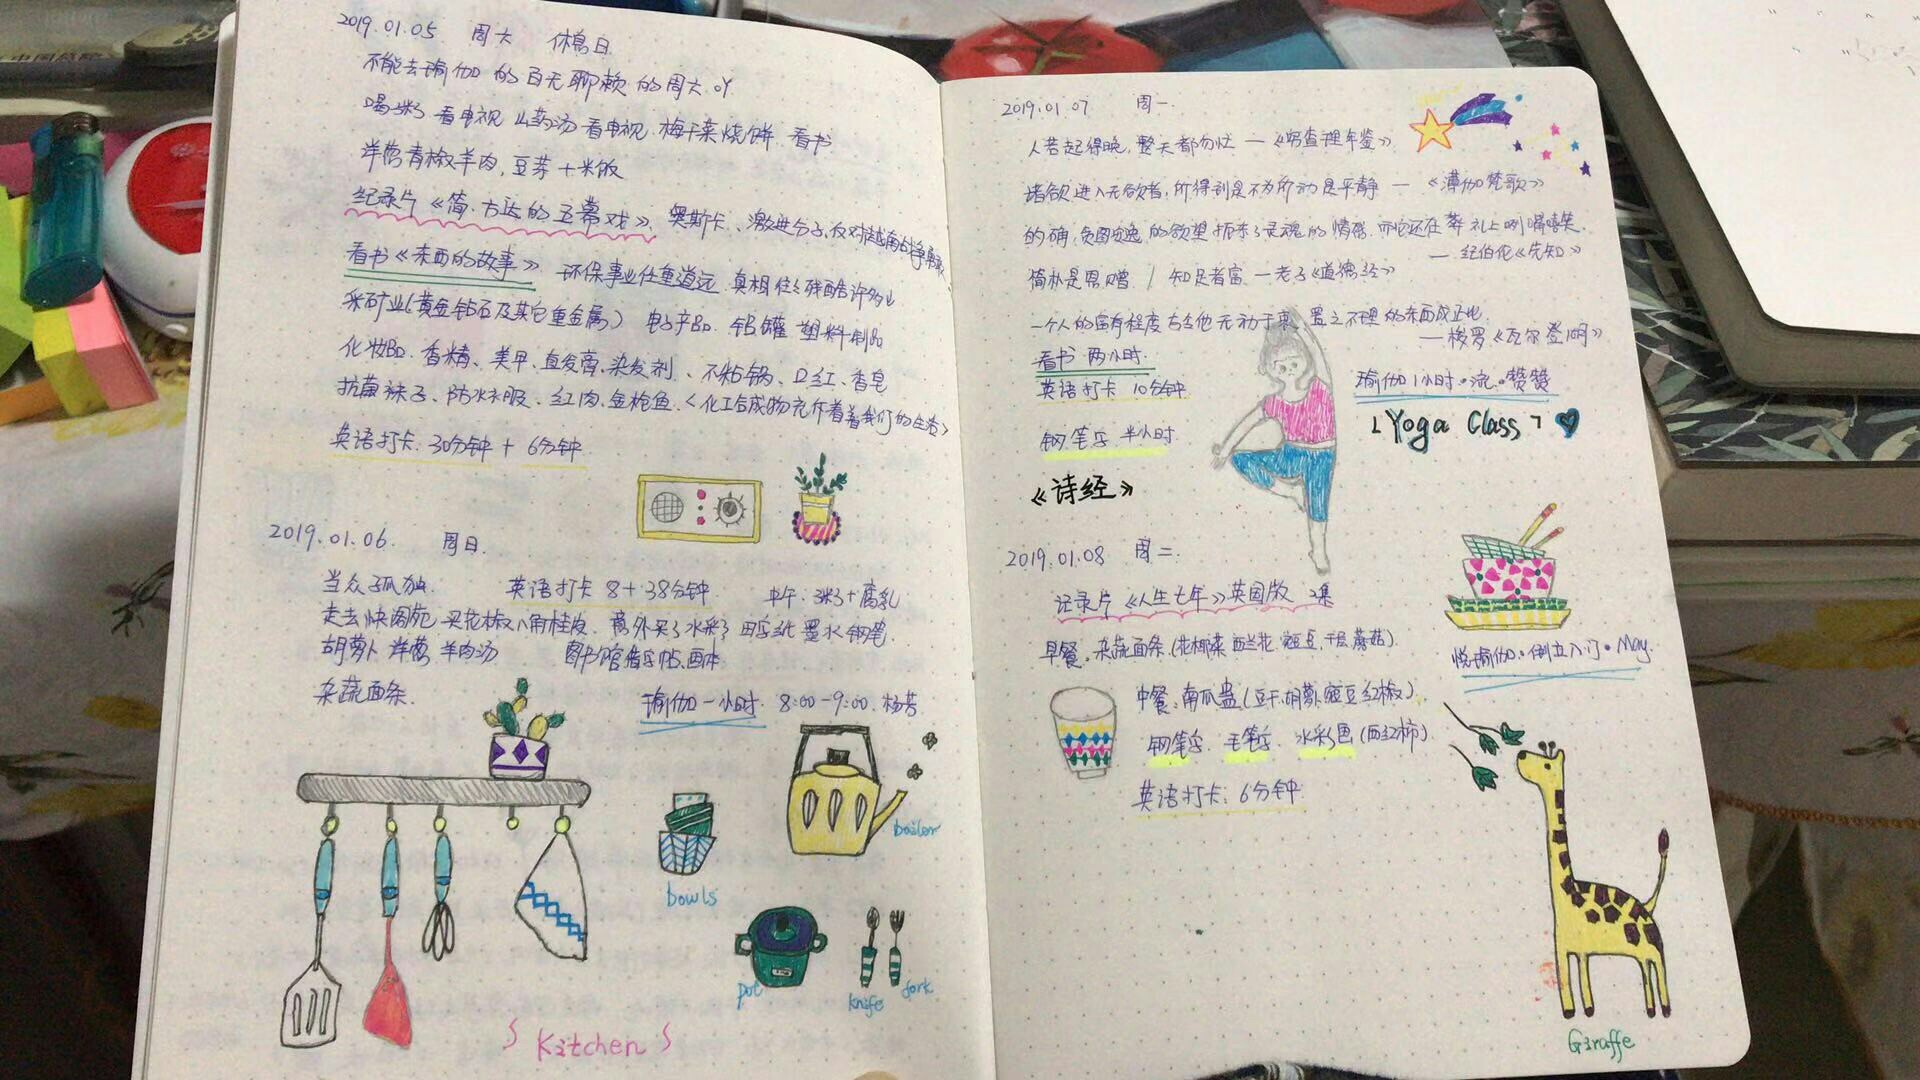 2019.01.05 周六 休息日
不能去瑜伽的百无聊赖的周六.吖
喝粥 看电视 山药汤 看电视.梅干菜烧饼.看书
洋葱青椒羊肉,豆芽+米饭
纪录片《简·方达的五幕戏》.奥斯卡、激进分子,反对越南战争
看书《东西的故事》 环保事业任重道远.真相往往残酷许多
采矿业(黄金钻石及其它重金属) 电子产品.铝罐 塑料制品
化妆品.香精、美甲、直发膏.染发剂、不粘锅、口红、香皂
抗菌袜子、防水衣服、红肉.金枪鱼.《化工合成物充斥着我们的生活》
英语打卡.30分钟+6分钟.
2019.01.06. 周日.
当众孤独. 英语打卡 8+38分钟. 中午:粥+腐乳
走去快阁苑 买花椒八角桂皮.意外买了水彩 田字纸 墨水 钢笔.
胡萝卜 洋葱 羊肉汤 图书馆借字帖.画本
杂蔬面条. 瑜伽一小时. 8:00-9:00.杨芳
boiler
bowls
pot
knife
fork
Kitchen
2019.01.07 周一.
人若起得晚,整天都匆忙 —《穷查理年鉴》.
诸欲进入无欲者,所得到是不为所动是平静 —《薄伽梵歌》
的确,贪图安逸的欲望扼杀了灵魂的情感.而它还在葬礼上咧嘴嘻笑.
— 纪伯伦《先知》
简朴是恩赠. / 知足者富 —老子《道德经》
一个人的富有程度与他无动于衷、置之不理的东西成正比.
—梭罗《瓦尔登湖》
看书 两小时.
英语打卡 10分钟.
瑜伽1小时·流·赞赞
钢笔字.半小时.
「Yoga Class」
《诗经》
2019.01.08 周二.
记录片《人生七年》英国版 2集
早餐.杂蔬面条.(花椰菜 西兰花 豌豆,干层蘑菇).
悦瑜伽·倒立入门·May.
中餐.南瓜盅(豆干.胡萝卜.豌豆红椒).
钢笔字.毛笔字.水彩画(西红柿).
英语打卡:6分钟.
Giraffe